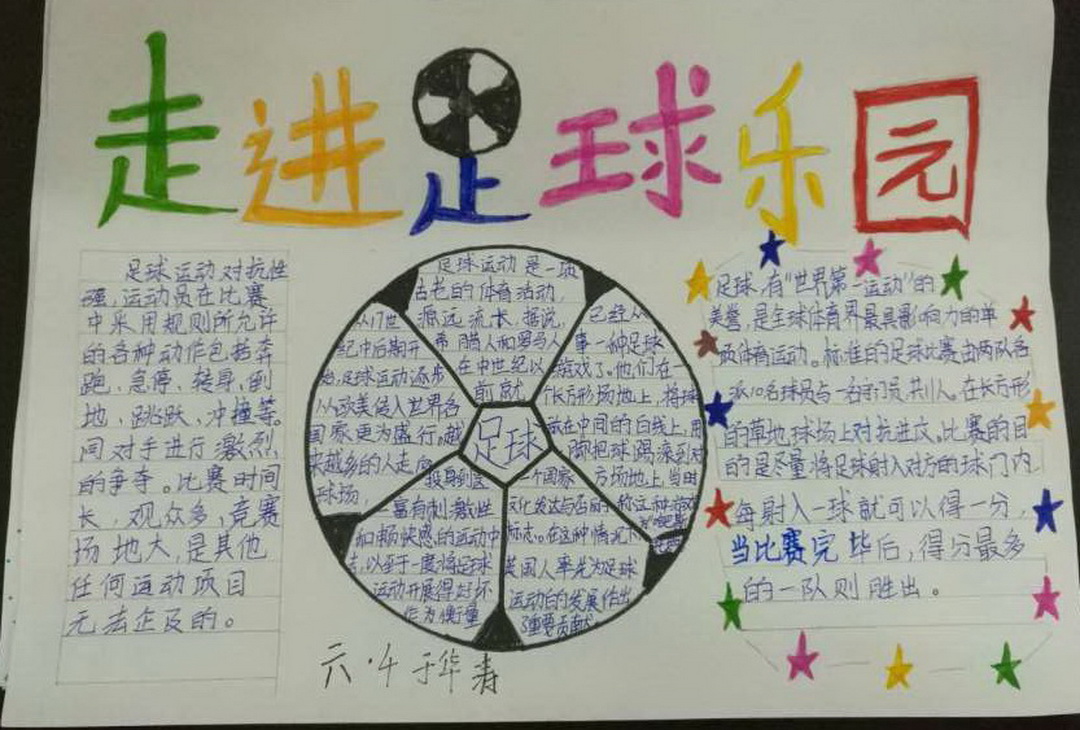 走进足球乐园
足球运动对抗性
强,运动员在比赛
中采用规则所允许
的各种动作包括奔
跑、急停、转身、倒
地、跳跃、冲撞等。
同对手进行激烈
的争夺。比赛时间
长,观众多,竞赛
场地大,是其他
任何运动项目
无法企及的。
足球运动是一项
古老的体育活动,
源远流长,据说,
希腊人和罗马人
在中世纪以
前就
已经从
事一种足球
游戏了。他们在一
个长方形场地上,将球
放在中间的白线上,用
脚把球踢滚到对
方场地上,当时
称这种游戏
从17世
纪中后期开
始,足球运动逐步
从欧美传入世界各
国家更为盛行。越
来越多的人走向
球场,
投身到这
一富有刺激性
和畅快感的运动中
去,以至于一度将足球
运动开展得好坏
作为衡量
一个国家
文化发达与否的
标志。在这种情况下
英国人率先为足球
运动的发展作出
了重要贡献
足球
足球,有“世界第一运动”的
美誉,是全球体育界最具影响力的单
项体育运动。标准的足球比赛由两队各
派10名球员与一名守门员,共11人。在长方形
的草地球场上对抗进攻。比赛的目
的是尽量将足球射入对方的球门内,
每射入一球就可以得一分,
当比赛完毕后,得分最多
的一队则胜出。
六·4 于华寿